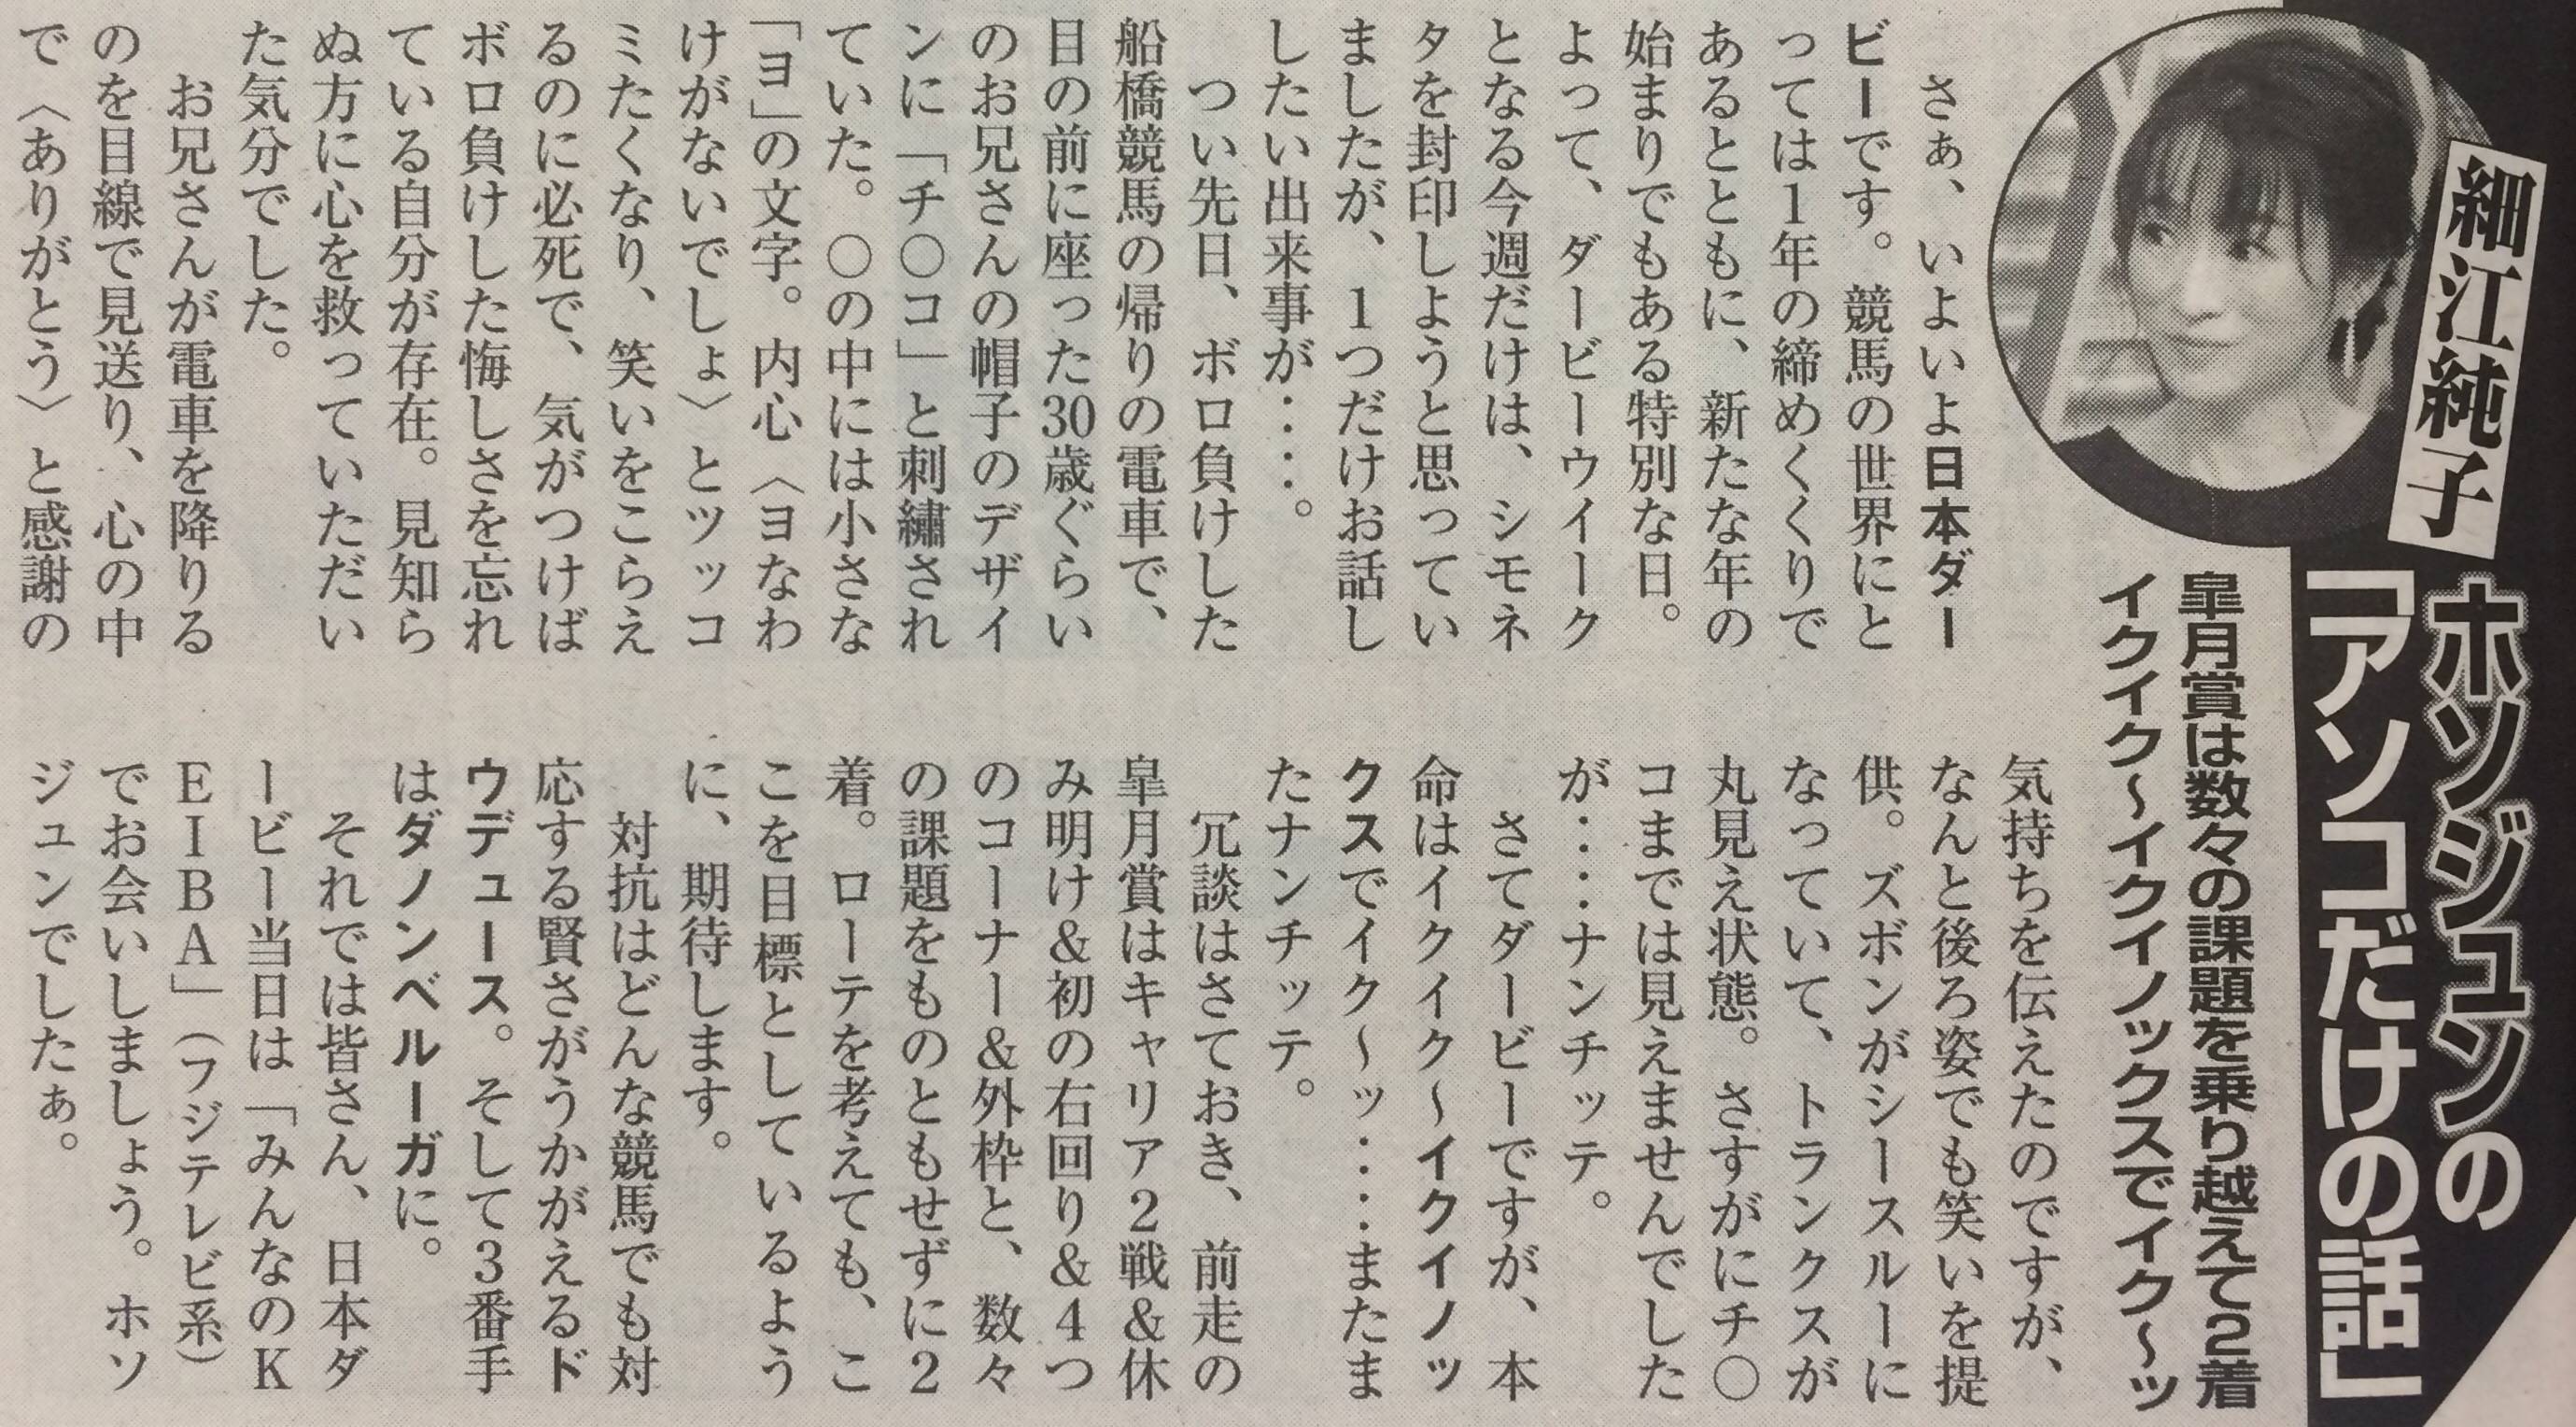 細江純子
ホソジュンの
「アソコだけの話」
皐月賞は数々の課題を乗り越えて2着
イクイク〜イクイノックスでイク〜ッ
さぁ、いよいよ日本ダー
ビーです。競馬の世界にと
っては1年の締めくくりで
あるとともに、新たな年の
始まりでもある特別な日。
よって、ダービーウイーク
となる今週だけは、シモネ
タを封印しようと思ってい
ましたが、1つだけお話し
したい出来事が‥‥。
つい先日、ボロ負けした
船橋競馬の帰りの電車で、
目の前に座った30歳ぐらい
のお兄さんの帽子のデザイ
ンに「チ○コ」と刺繡され
ていた。○の中には小さな
「ヨ」の文字。内心〈ヨなわ
けがないでしょ〉とツッコ
ミたくなり、笑いをこらえ
るのに必死で、気がつけば
ボロ負けした悔しさを忘れ
ている自分が存在。見知ら
ぬ方に心を救っていただい
た気分でした。
お兄さんが電車を降りる
のを目線で見送り、心の中
で〈ありがとう〉と感謝の
気持ちを伝えたのですが、
なんと後ろ姿でも笑いを提
供。ズボンがシースルーに
なっていて、トランクスが
丸見え状態。さすがにチ○
コまでは見えませんでした
が‥‥ナンチッテ。
さてダービーですが、本
命はイクイク〜イクイノッ
クスでイク〜ッ‥‥またま
たナンチッテ。
冗談はさておき、前走の
皐月賞はキャリア2戦&休
み明け&初の右回り&4つ
のコーナー&外枠と、数々
の課題をものともせずに2
着。ローテを考えても、こ
こを目標としているよう
に、期待します。
対抗はどんな競馬でも対
応する賢さがうかがえるド
ウデュース。そして3番手
はダノンベルーガに。
それでは皆さん、日本ダ
ービー当日は「みんなのK
EIBA」(フジテレビ系)
でお会いしましょう。ホソ
ジュンでしたぁ。